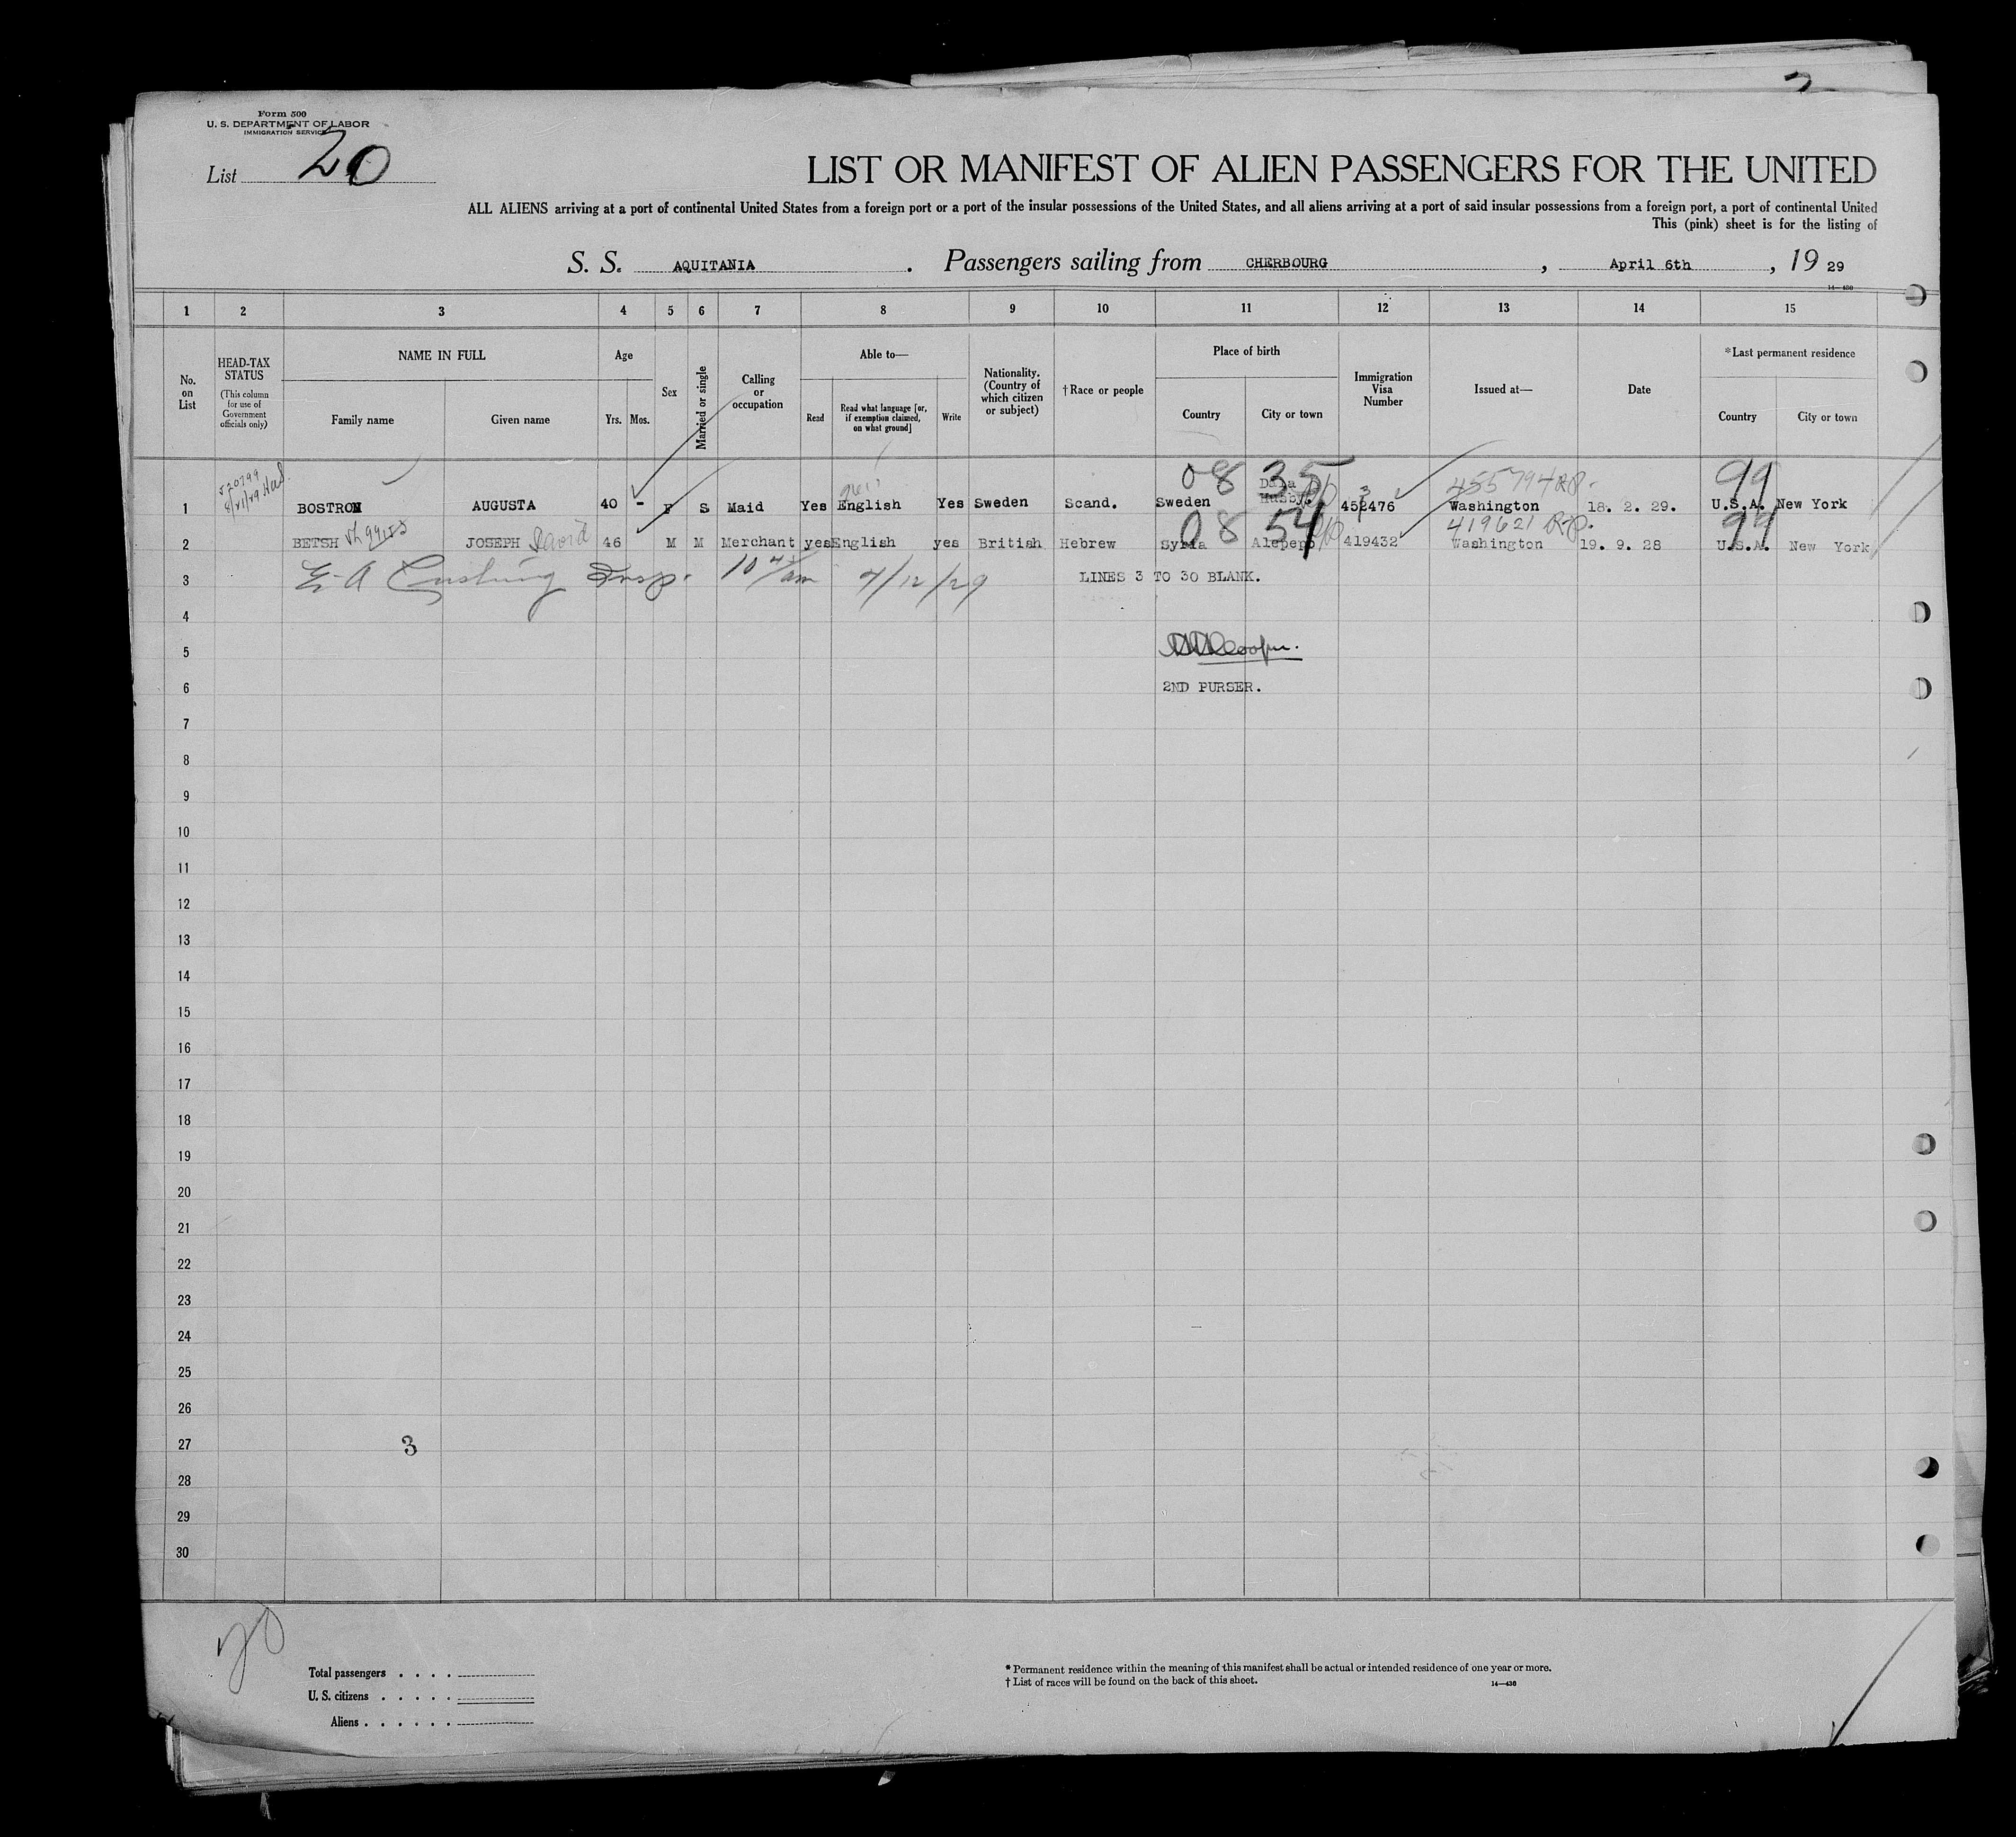 Form 500
U. S. DEPARTMENT OF LABOR
IMMIGRATION SERVICE
List 20
LIST OR MANIFEST OF ALIEN PASSENGERS FOR THE UNITED
ALL ALIENS arriving at a port of continental United States from a foreign port or a port of the insular possessions of the United States, and all aliens arriving at a port of said insular possessions from a foreign port, a port of continental United
This (pink) sheet is for the listing of
S. S. AQUITANIA . Passengers sailing from CHERBOURG , April 6th , 19 29
14—430
1 2 3 4 5 6 7 8 9 10 11 12 13 14 15
No. on List
HEAD-TAX STATUS
(This column for use of Government officials only)
NAME IN FULL
Family name Given name
Age
Yrs. Mos.
Sex
Married or single
Calling or occupation
Able to—
Read
Read what language [or, if exemption claimed, on what ground]
Write
Nationality. (Country of which citizen or subject)
† Race or people
Place of birth
Country City or town
Immigration Visa Number
Issued at—
Date
*Last permanent residence
Country City or town
520799
08 35 455794 RP. 99
1 BOSTRON AUGUSTA 40 - F S Maid Yes English Yes Sweden Scand. Sweden Dala Husby. 452476 Washington 18. 2. 29. U.S.A. New York
08 54 419621 R.P. 99
2 BETSH JOSEPH David 46 M M Merchant yes English yes British Hebrew Syria Alepepo 419432 Washington 19. 9. 28 U.S.A. New York
3 E A Cushing Insp. 10 45 am 4/12/29 LINES 3 TO 30 BLANK.
4
5 Cooper.
6 2ND PURSER.
7
8
9
10
11
12
13
14
15
16
17
18
19
20
21
22
23
24
25
26
27 3
28
29
30
20
Total passengers . . . .
U. S. citizens . . . . .
Aliens . . . . . .
* Permanent residence within the meaning of this manifest shall be actual or intended residence of one year or more.
† List of races will be found on the back of this sheet.
14—430